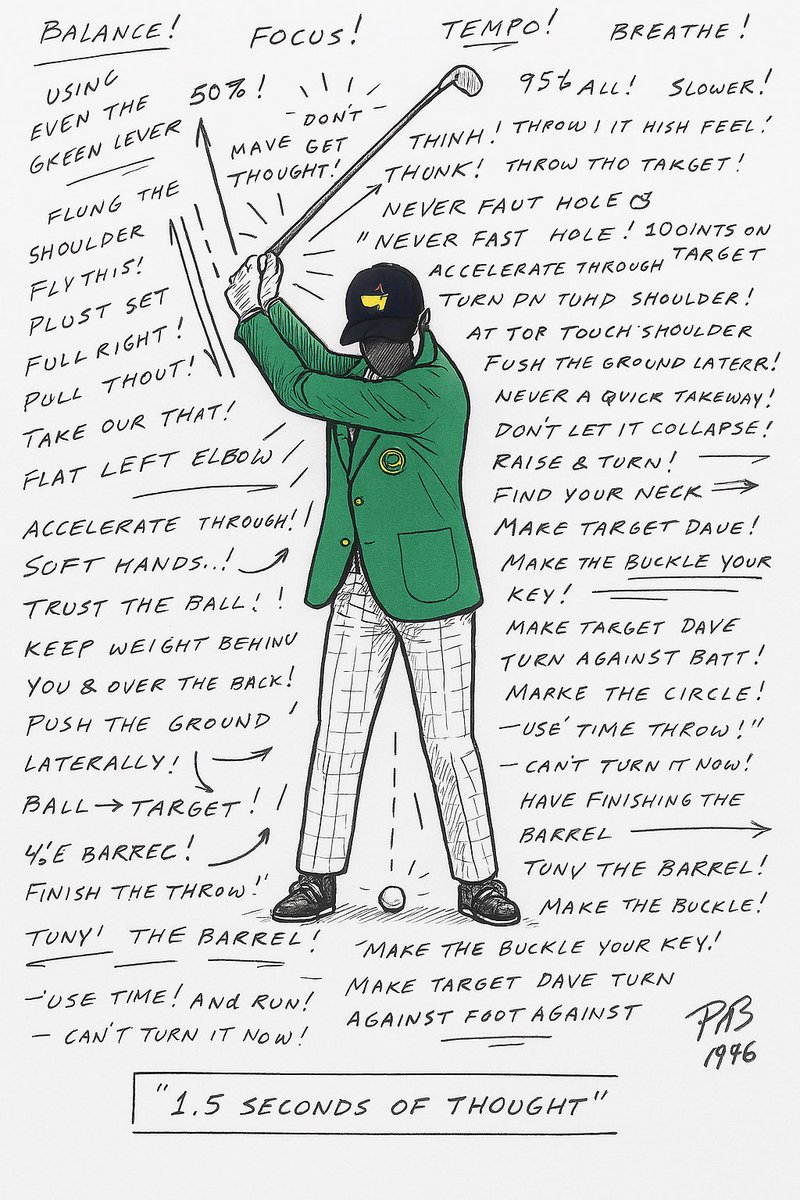 BALANCE! FOCUS! TEMPO! BREATHE!
USING
EVEN THE
GREEN LEVER
50%!
DON'T
MAVE GET
THOUGHT!
FLUNG THE
SHOULDER
FLY THIS!
PLUST SET
FULL RIGHT!
PULL THOUT!
TAKE OUR THAT!
FLAT LEFT ELBOW
ACCELERATE THROUGH!
SOFT HANDS..!
TRUST THE BALL!!
KEEP WEIGHT BEHINU
YOU & OVER THE BACK!
PUSH THE GROUND
LATERALLY!
BALL → TARGET!
BARREC!
FINISH THE THROW!"
TUNY' THE BARREL!
-'USE TIME! AND RUN!
- CAN'T TURN IT NOW!
ALL! SLOWER!
THINH! THROW I IT HISH FEEL!
THUNK! THROW THO TARGET!
NEVER FAUT HOLE
"NEVER FAST HOLE! 10OINTS ON
TARGET
ACCELERATE THROUGH
TURN PN TUHD SHOULDER!
AT TOP TOUCH SHOULDER
FUSH THE GROUND LATERR!
NEVER A QUICK TAKEWAY!
DON'T LET IT COLLAPSE!
RAISE & TURN!
FIND YOUR NECK
MAKE TARGET DAUE!
MAKE THE BUCKLE YOUR
KEY!
MAKE TARGET DAVE
TURN AGAINST BATT!
MARKE THE CIRCLE!
-USE' TIME THROW!"
- CAN'T TURN IT NOW!
HAVE FINISHING THE
BARREL →
TUNY THE BARREL!
MAKE THE BUCKLE!
MAKE THE BUCKLE YOUR KEY!
MAKE TARGET DAVE TURN
AGAINST FOOT AGAINST
"1.5 SECONDS OF THOUGHT"